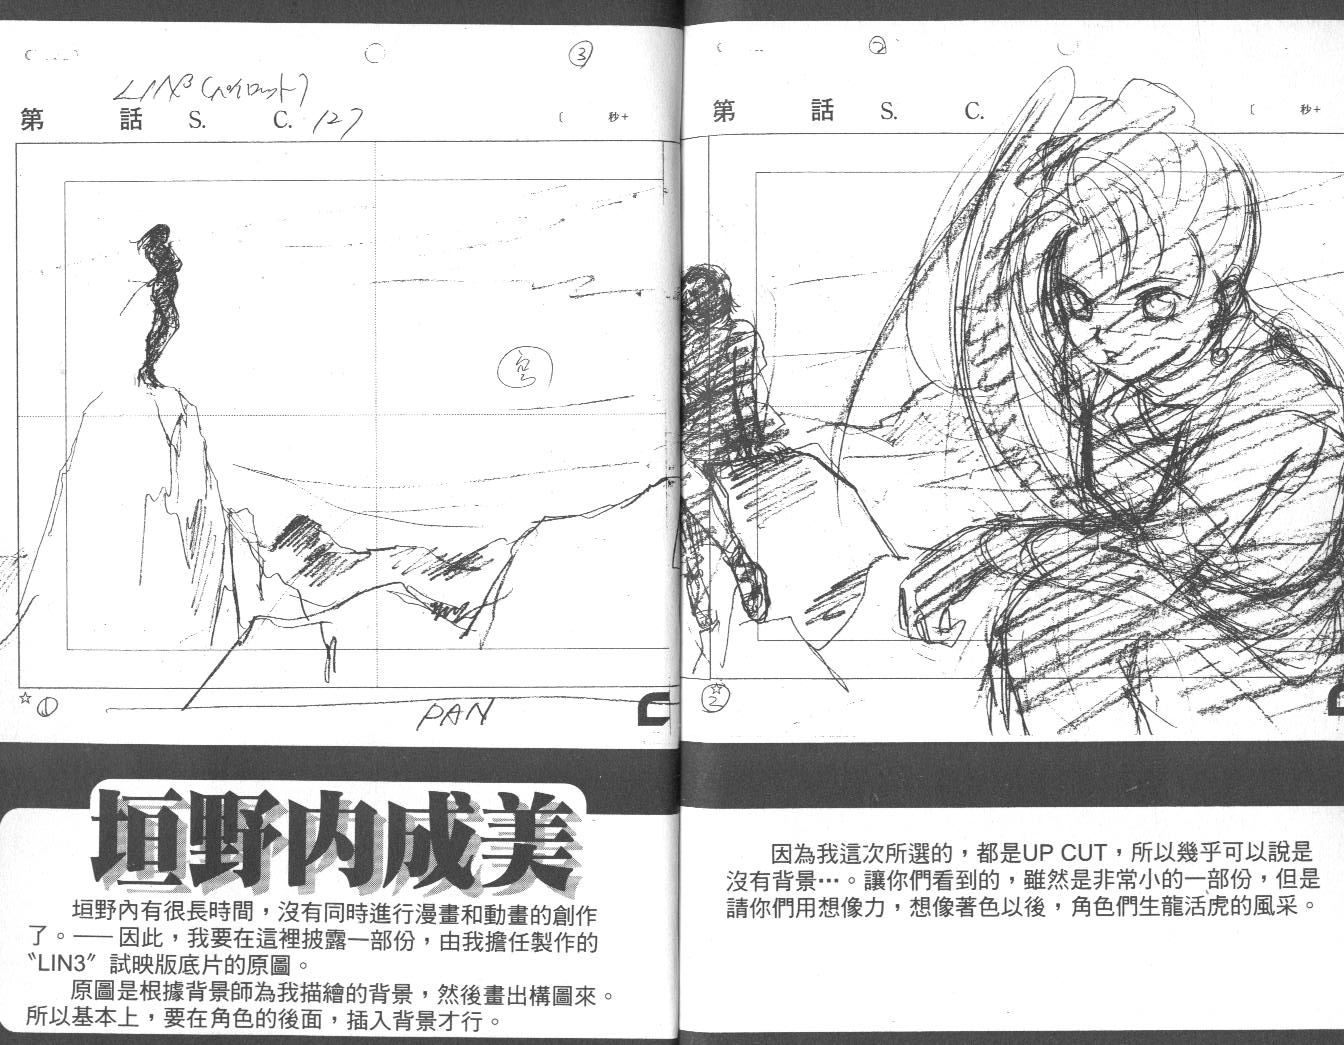 ③
LIN3 (パイロット)
第 話 S. C. 127 〔 秒+
鳥
☆ ①
PAN
②
第 話 S. C. 〔 秒+
☆
②
垣野內成美
垣野內有很長時間，沒有同時進行漫畫和動畫的創作
了。── 因此，我要在這裡披露一部份，由我擔任製作的
〝LIN3〞試映版底片的原圖。
原圖是根據背景師為我描繪的背景，然後畫出構圖來。
所以基本上，要在角色的後面，插入背景才行。
因為我這次所選的，都是UP CUT，所以幾乎可以說是
沒有背景…。讓你們看到的，雖然是非常小的一部份，但是
請你們用想像力，想像著色以後，角色們生龍活虎的風采。